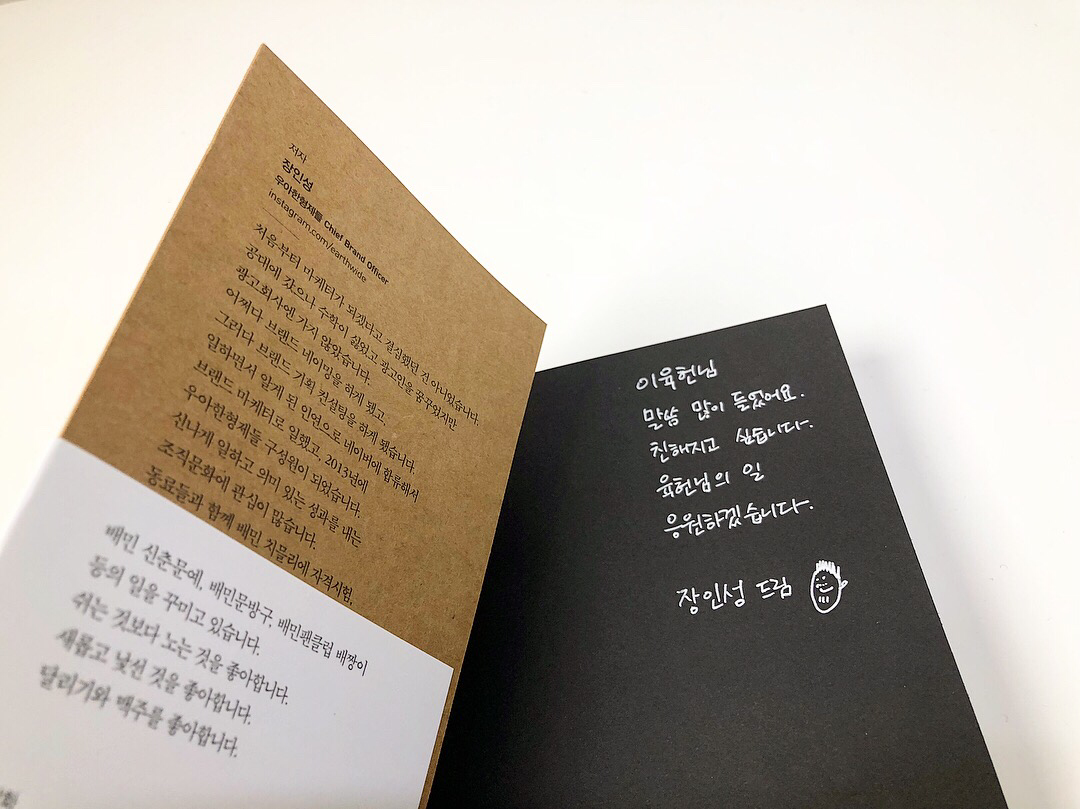 저자
장인성
우아한형제들 Chief Brand Officer
instagram.com/earthwide
처음부터 마케터가 되겠다고 결심했던 건 아니었습니다.
공대에 갔으나 수학이 싫었고 광고인을 꿈꾸었지만
광고회사엔 가지 않았습니다.
어쩌다 브랜드 네이밍을 하게 됐고,
그러다 브랜드 기획 컨설팅을 하게 됐습니다.
일하면서 알게 된 인연으로 네이버에 합류해서
브랜드 마케터로 일했고, 2013년에
우아한형제들 구성원이 되었습니다.
신나게 일하고 의미 있는 성과를 내는
조직문화에 관심이 많습니다.
동료들과 함께 배민 치믈리에 자격시험,
배민 신춘문예, 배민문방구, 배민팬클럽 배짱이
등의 일을 꾸미고 있습니다.
쉬는 것보다 노는 것을 좋아합니다.
새롭고 낯선 것을 좋아합니다.
달리기와 맥주를 좋아합니다.
이육헌님
말씀 많이 들었어요.
친해지고 싶습니다.
육헌님의 일
응원하겠습니다.
장인성 드림